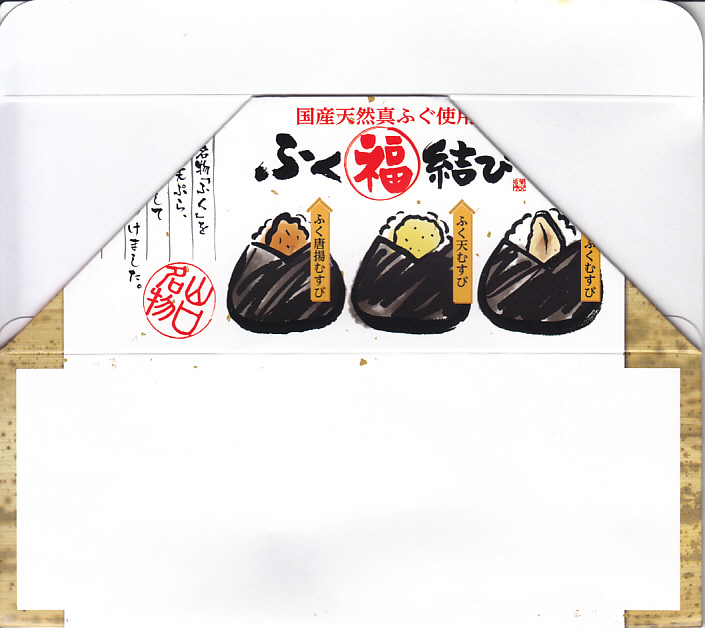 国産天然真ふぐ使用
ふく福結び
名物「ふく」を
天ぷら、
して
けました。
山口名物
ふく唐揚むすび
ふく天むすび
ふくむすび